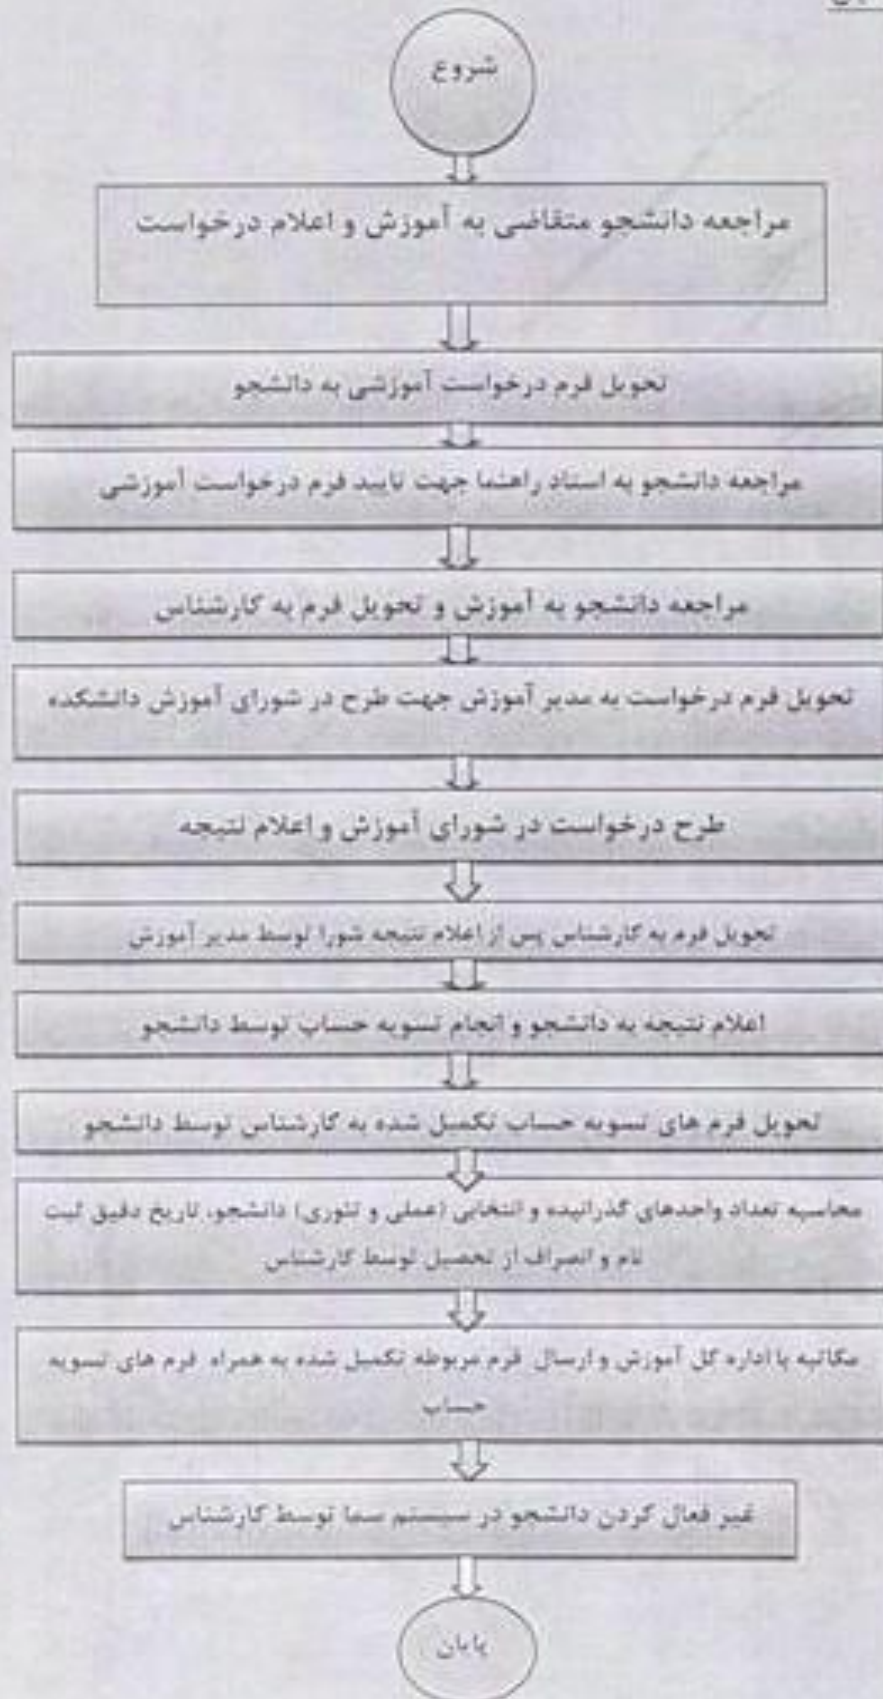 شروع
مراجعه دانشجو متقاضی به آموزش و اعلام درخواست
تحویل فرم درخواست آموزشی به دانشجو
مراجعه دانشجو به استاد راهنما جهت تایید فرم درخواست آموزشی
مراجعه دانشجو به آموزش و تحویل فرم به کارشناس
تحویل فرم درخواست به مدیر آموزش جهت طرح در شورای آموزش دانشکده
طرح درخواست در شورای آموزش و اعلام نتیجه
تحویل فرم به کارشناس پس از اعلام نتیجه شورا توسط مدیر آموزش
اعلام نتیجه به دانشجو و انجام تسویه حساب توسط دانشجو
تحویل فرم های تسویه حساب تکمیل شده به کارشناس توسط دانشجو
محاسبه تعداد واحدهای گذرانیده و انتخابی (عملی و تئوری) دانشجو، تاریخ دقیق ثبت
نام و انصراف از تحصیل توسط کارشناس
مکاتبه با اداره کل آموزش و ارسال فرم مربوطه تکمیل شده به همراه فرم های تسویه
حساب
غیر فعال کردن دانشجو در سیستم سما توسط کارشناس
پایان